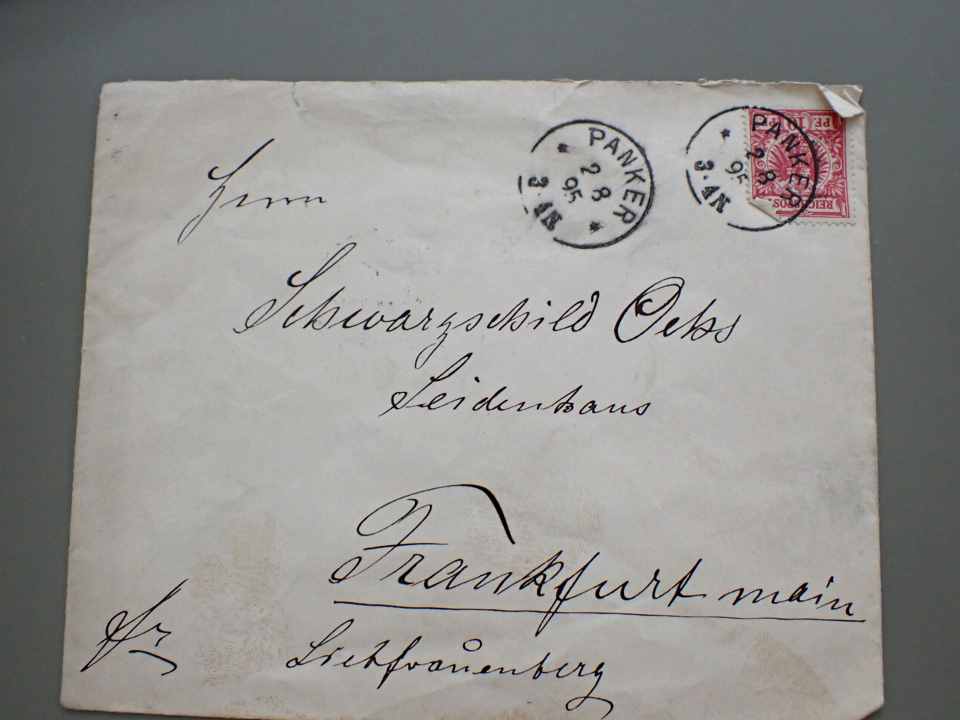 PANKER
2 8
95
3-4N
PANKER
2 8
95
3-4N
PF 10 PF
REICHSPOS
Herrn
Schwarzschild Ochs
Seidenhaus
Frankfurt main
fr
Liebfrauenberg